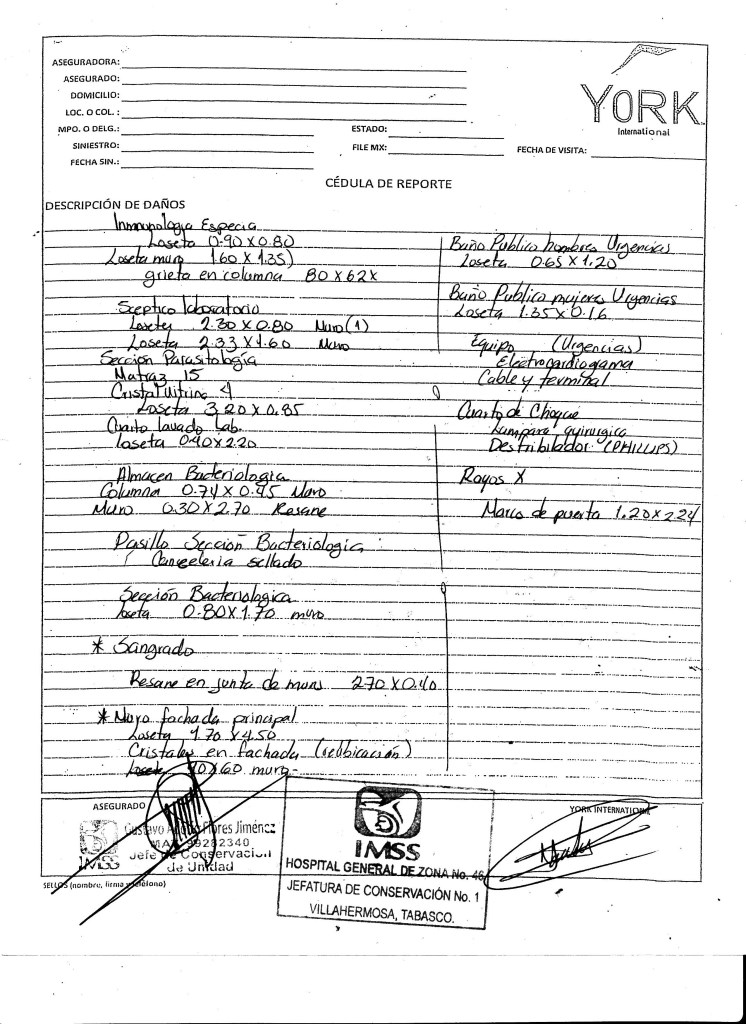 ASEGURADORA:
ASEGURADO:
DOMICILIO:
LOC. O COL. :
MPO. O DELG.:
SINIESTRO:
FECHA SIN.:
ESTADO:
FILE MX:
FECHA DE VISITA:
YORK
International
CÉDULA DE REPORTE
DESCRIPCIÓN DE DAÑOS
Inmunologia Especia
Loseta 0.90 X 0.80
Loseta muro 1.60 X 1.35)
grieta en columna 80 X 62 X
Sceptico laboratorio
Losetas 2.30 X 0.80 Muro (1)
Loseta 2.33 X 1.60 Muro
Sección Parasitología
Matraz 15
Cristal vitrina 4
Loseta 3.20 X 0.85
Cuarto lavado Lab.
loseta 0.40 X 2.20
Almacen Bacteriologia
Columna 0.74 X 0.45 Muro
Muro 0.30 X 2.70 Resane
Pasillo Sección Bacteriologia
Canceleria sellado
Sección Bacteriologica
loseta 0.80 X 1.70 muro
* Sangrado
Resane en junta de muros 2.70 X 0.40
* Muro fachada principal
Loseta 1.70 X 4.50
Cristales en fachada (reubicación)
60 muro
Baño Publico hombres Urgencias
Loseta 0.65 X 1.20
Baño Publico mujeres Urgencias
Loseta 1.35 X 0.16
Equipo (Urgencias)
Electrocardiograma
Cable y terminal
Cuarto de Choque
Lampara quirurgica
Desfribilador (PHILLIPS)
Rayos X
Marco de puerta 1.20 X 2.24
ASEGURADO
Gustavo Flores Jiménez
MAT 99282340
Jefe de Conservación
de Unidad
IMSS
SELLOS (nombre, firma y teléfono)
IMSS
HOSPITAL GENERAL DE ZONA No. 46
JEFATURA DE CONSERVACIÓN No. 1
VILLAHERMOSA, TABASCO.
YORK INTERNATIONAL